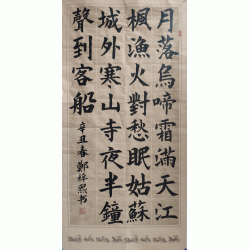 月落烏啼霜滿天江
楓漁火對愁眠姑蘇
城外寒山寺夜半鐘
聲到客船
辛丑春鄭梓熙书